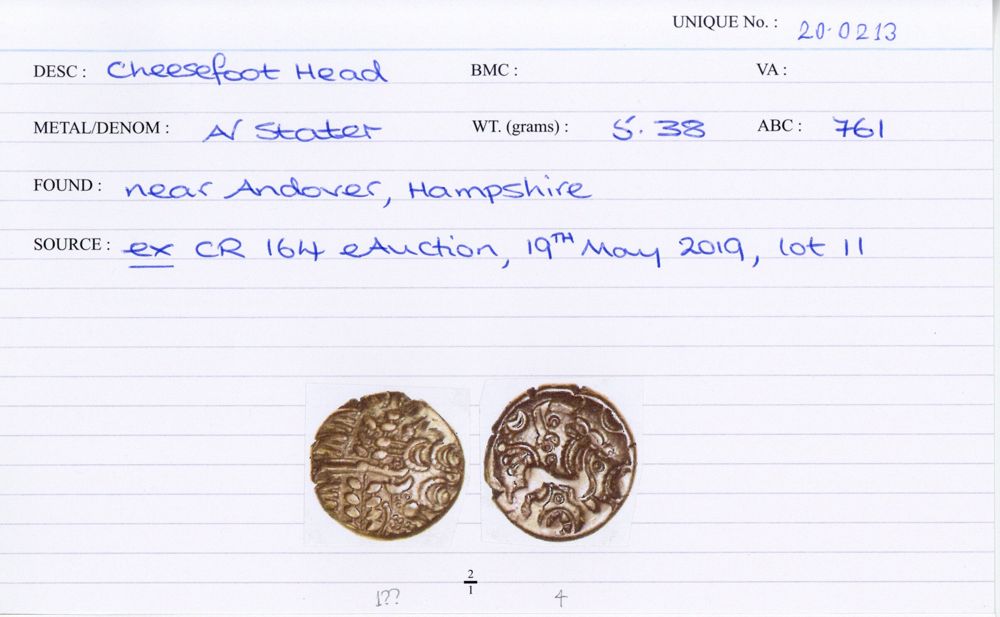 UNIQUE No. : 20.0213
DESC : Cheesefoot Head BMC : VA :
METAL/DENOM : AV Stater WT. (grams) : 5.38 ABC : 761
FOUND : near Andover, Hampshire
SOURCE : ex CR 164 eAuction, 19TH May 2019, lot 11
2
1
1?? 4